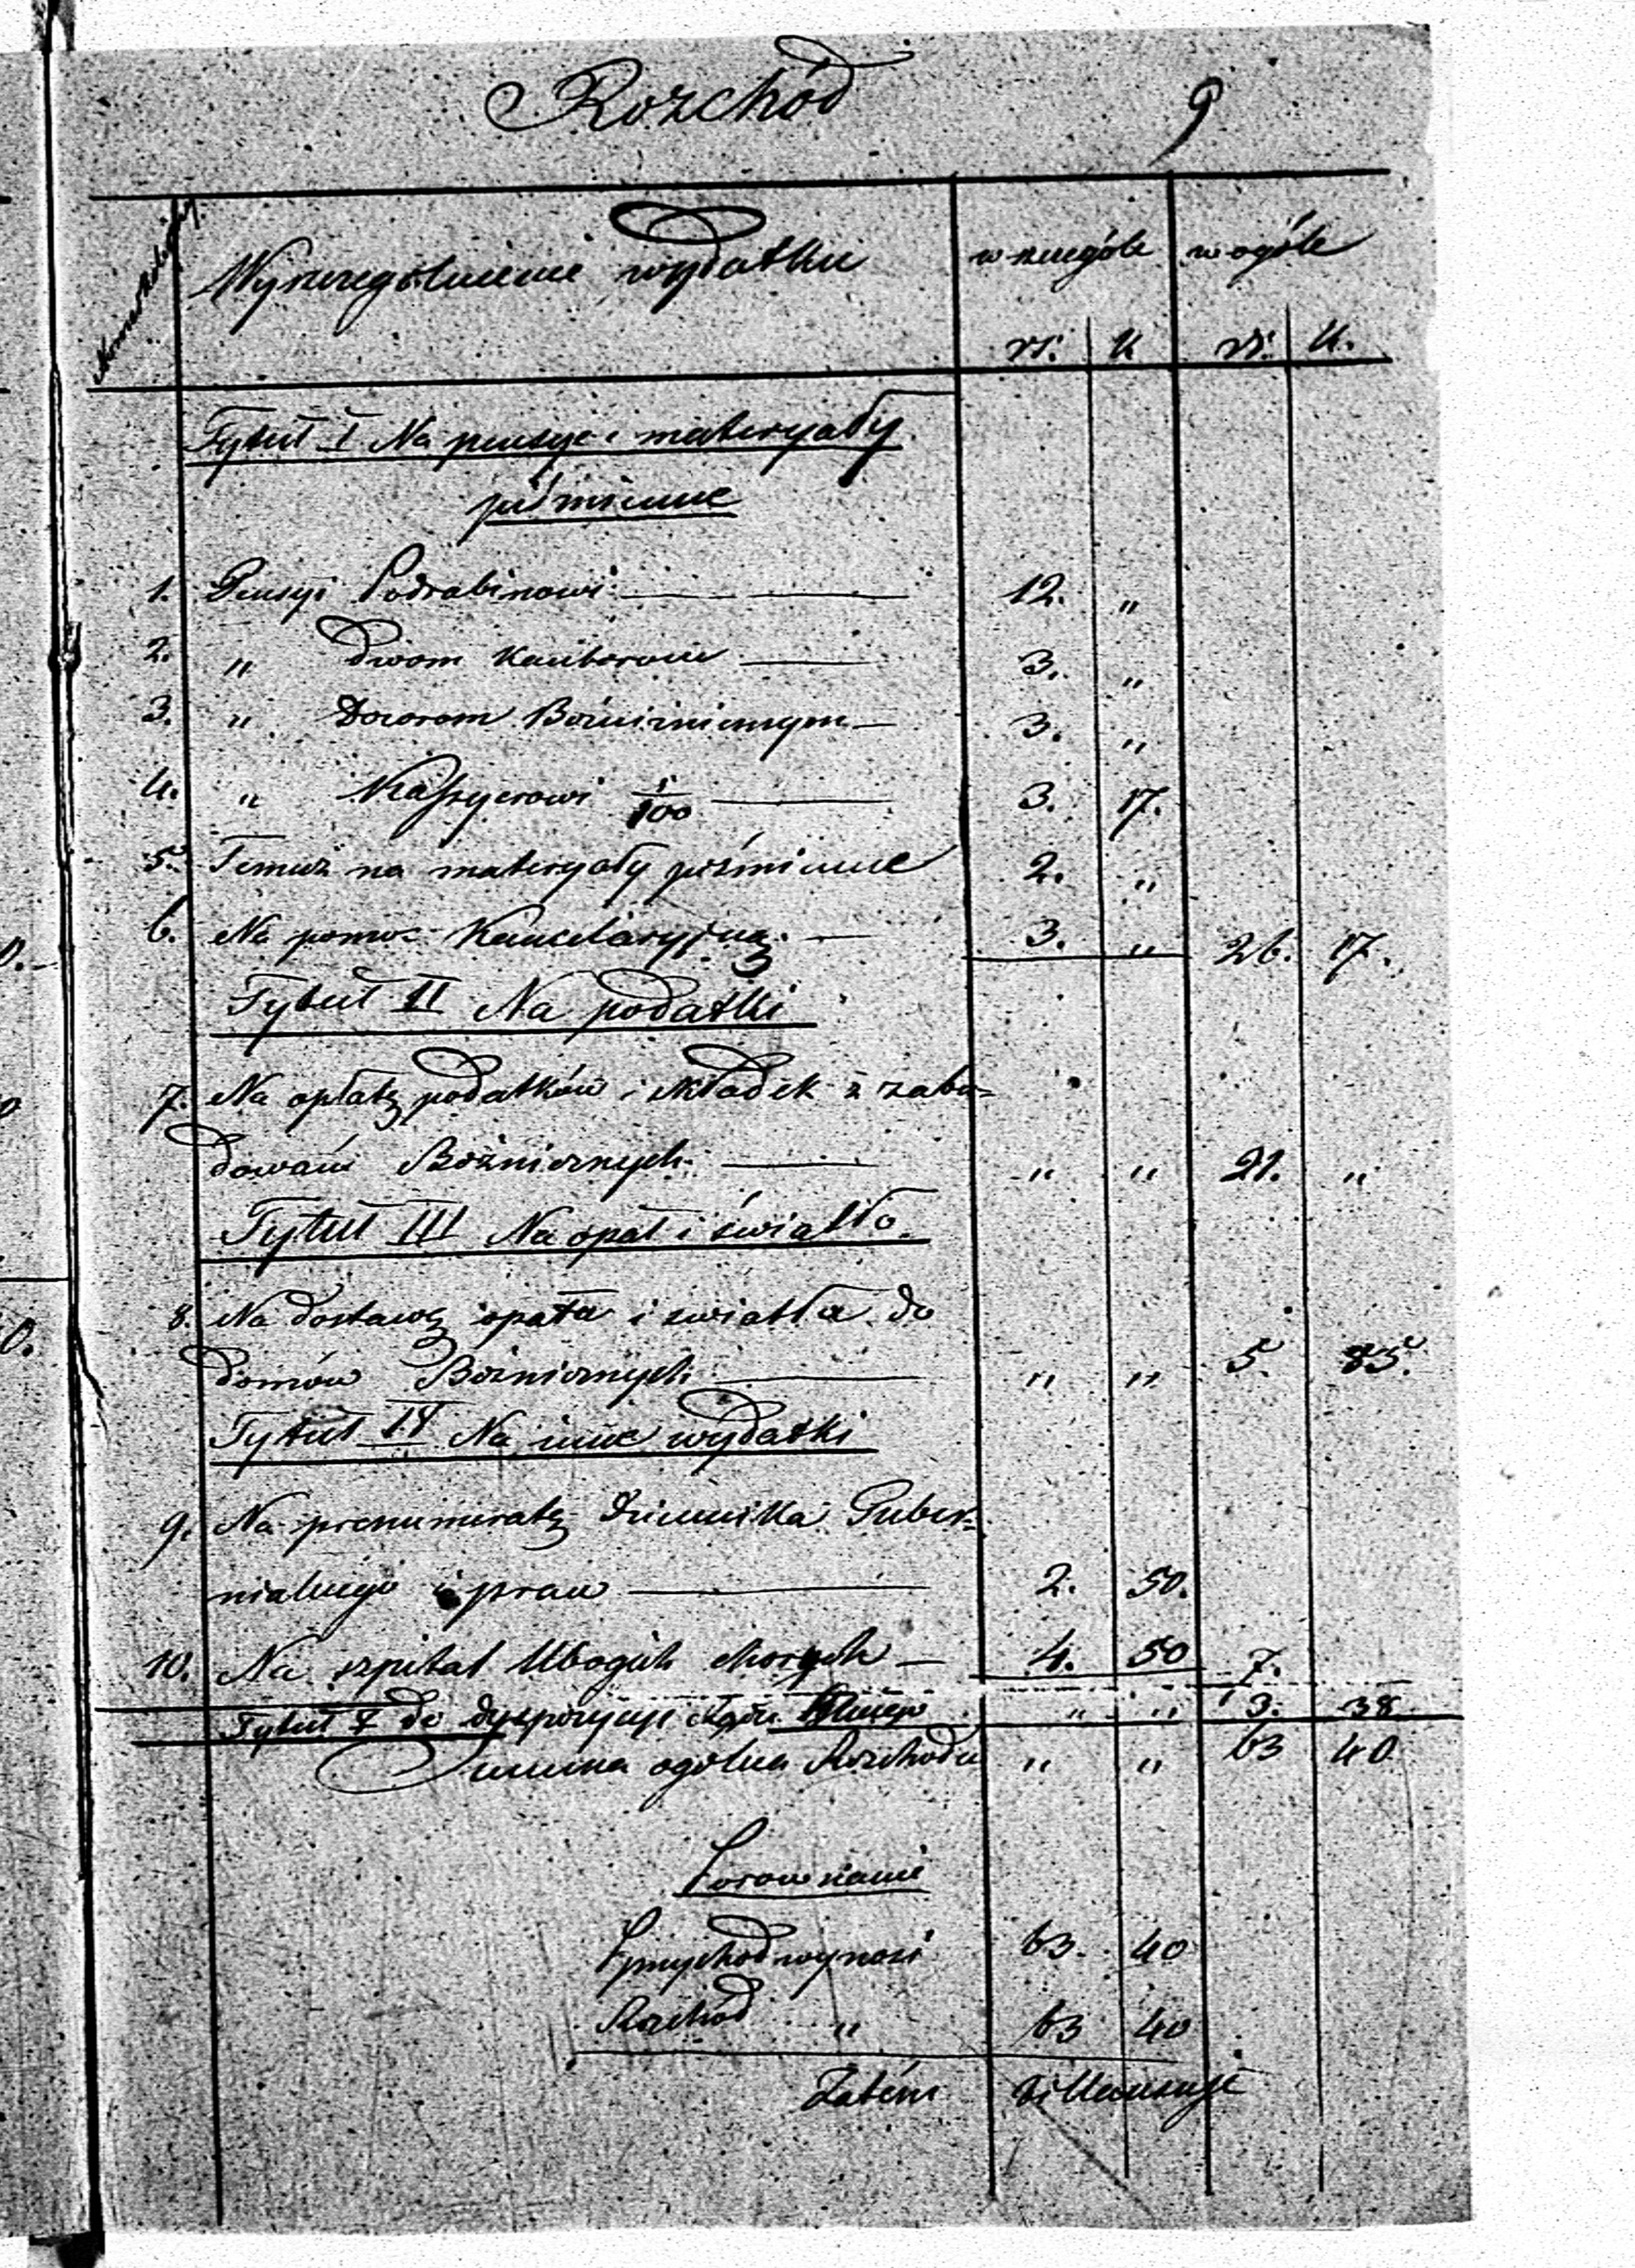 Rozchód
9
Numer kolejny
Wyszczególnienie wydatku
w szczególe w ogóle
rs. k rs. k.
Tytuł I Na pensye i materyały
piśmienne
1. Pensyi Podrabinowi 12. "
2. " dwom Kantorom 3. "
3. " Dozorom Bóżnicznemu 3. "
4. " Kassyerowi 5/100 3. 17.
5. Temuż na materyały piśmienne 2. "
6. Na pomoc Kancelaryjną 3. " 26. 17.
Tytuł II Na podatki
7. Na opłatę podatków i składek z zabu-
dowań Bóżnicznych " " 21. "
Tytuł III Na opał i światło.
8. Na dostawę opału i światła do
domów Bóżnicznych " " 5. 85.
Tytuł IV Na inne wydatki
9. Na prenumeratę Dziennika Guber-
nialnego i praw 2. 50.
10. Na szpital Ubogich chorych 4. 50 7.
Tytuł V do dyspozycyi " " 3. 38
Summa ogólna Rozchodu " " 63 40
Porównanie
Przychod wynosi 63. 40
Rozchód " 63 40
Zatém billansuje